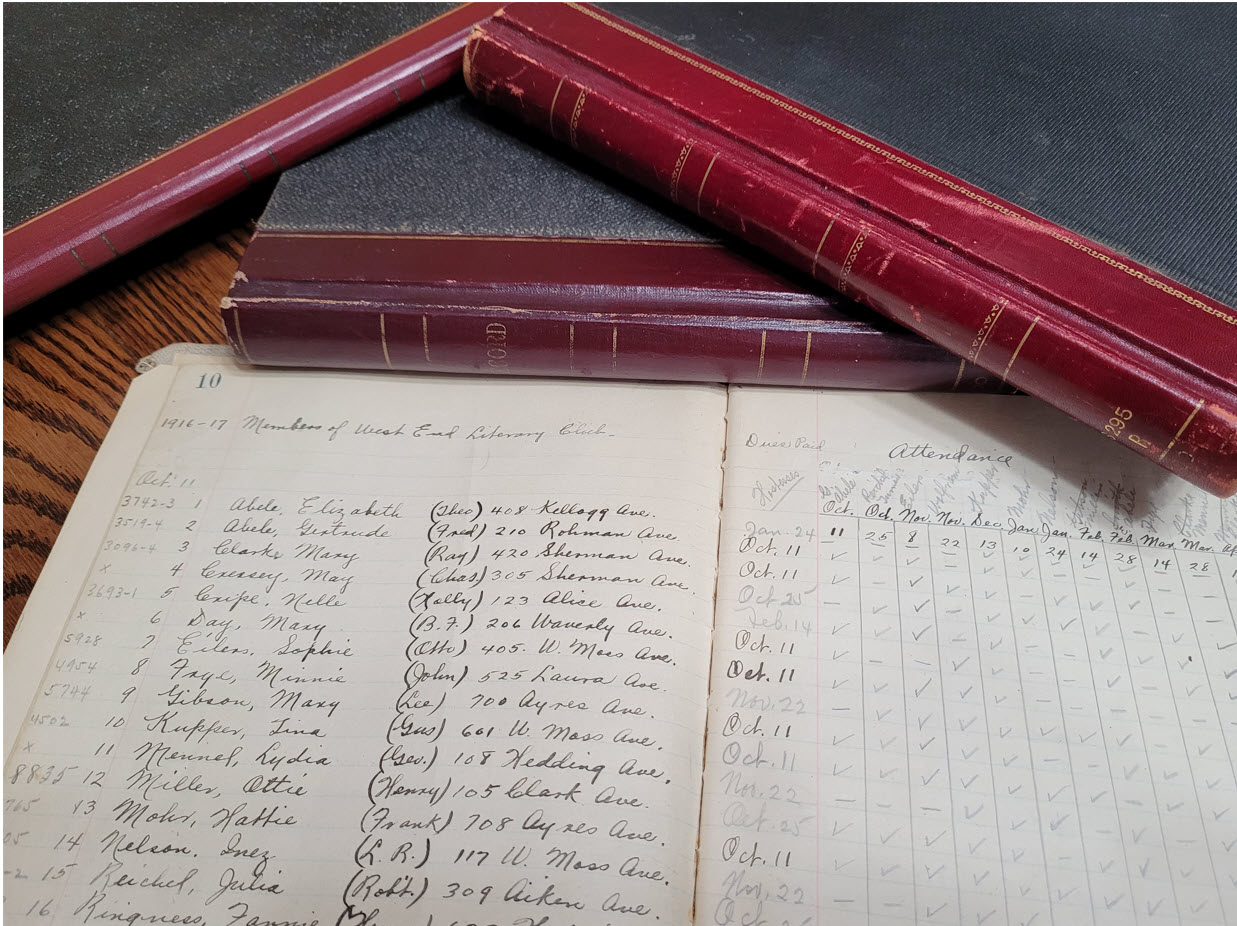 CORD
295
R
10
1916-17 Members of West End Literary Club
Oct. 11
3742-3 1 Abele, Elizabeth (Theo) 408 Kellogg Ave.
3519-4 2 Abele, Gertrude (Fred) 210 Rohman Ave.
3096-4 3 Clarke Mary (Ray) 420 Sherman Ave.
x 4 Cressey, May (Chas) 305 Sherman Ave.
3693-1 5 Cripe, Nelle (Holly) 123 Alice Ave.
x 6 Day, Mary (B.F.) 206 Waverly Ave.
5928 7 Eilers, Sophie (Otto) 405. W. Moss Ave.
4954 8 Frye, Minnie (John) 525 Laura Ave.
5744 9 Gibson, Mary (Lee) 700 Ayres Ave.
4502 10 Kupper, Tina (Gus) 601 W. Moss Ave.
x 11 Mennel, Lydia (Geo.) 108 Hedding Ave.
8835 12 Miller, Ottie (Henry) 105 Clark Ave.
765 13 Mohr, Hattie (Frank) 708 Ayres Ave.
05 14 Nelson, Inez (L.R.) 117 W. Moss Ave.
-2 15 Reichel, Julia (Robt.) 309 Aiken Ave.
16 Ringness, Fannie
Dues Paid Attendance
Hostesses
Oct. Oct. Nov. Nov. Dec. Jan. Jan. Feb. Feb. Mar. Mar.
Jan. 24 11 25 8 22 13 10 24 14 28 14 28
Oct. 11
Oct. 11
Oct. 25
Feb. 14
Oct. 11
Oct. 11
Nov. 22
Oct. 11
Oct. 11
Nov. 22
Oct. 25
Oct. 11
Nov. 22